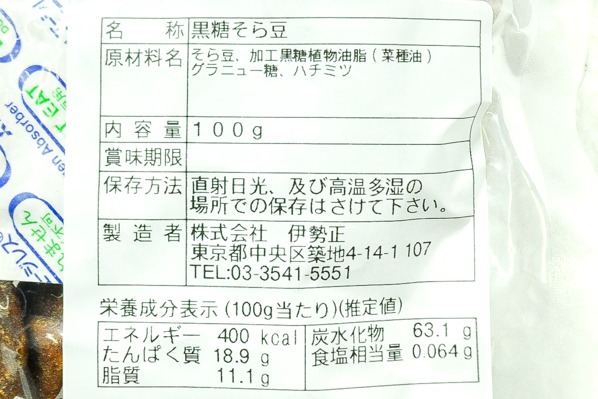 名 称 黒糖そら豆
原材料名 そら豆、加工黒糖植物油脂(菜種油)
グラニュー糖、ハチミツ
内容量 100g
賞味期限
保存方法 直射日光、及び高温多湿の
場所での保存はさけて下さい。
製造者 株式会社 伊勢正
東京都中央区築地4-14-1 107
TEL:03-3541-5551
栄養成分表示(100g当たり)(推定値)
エネルギー 400 kcal 炭水化物 63.1 g
たんぱく質 18.9 g 食塩相当量 0.064 g
脂質 11.1 g
EAT
en Absorber
れません
不可